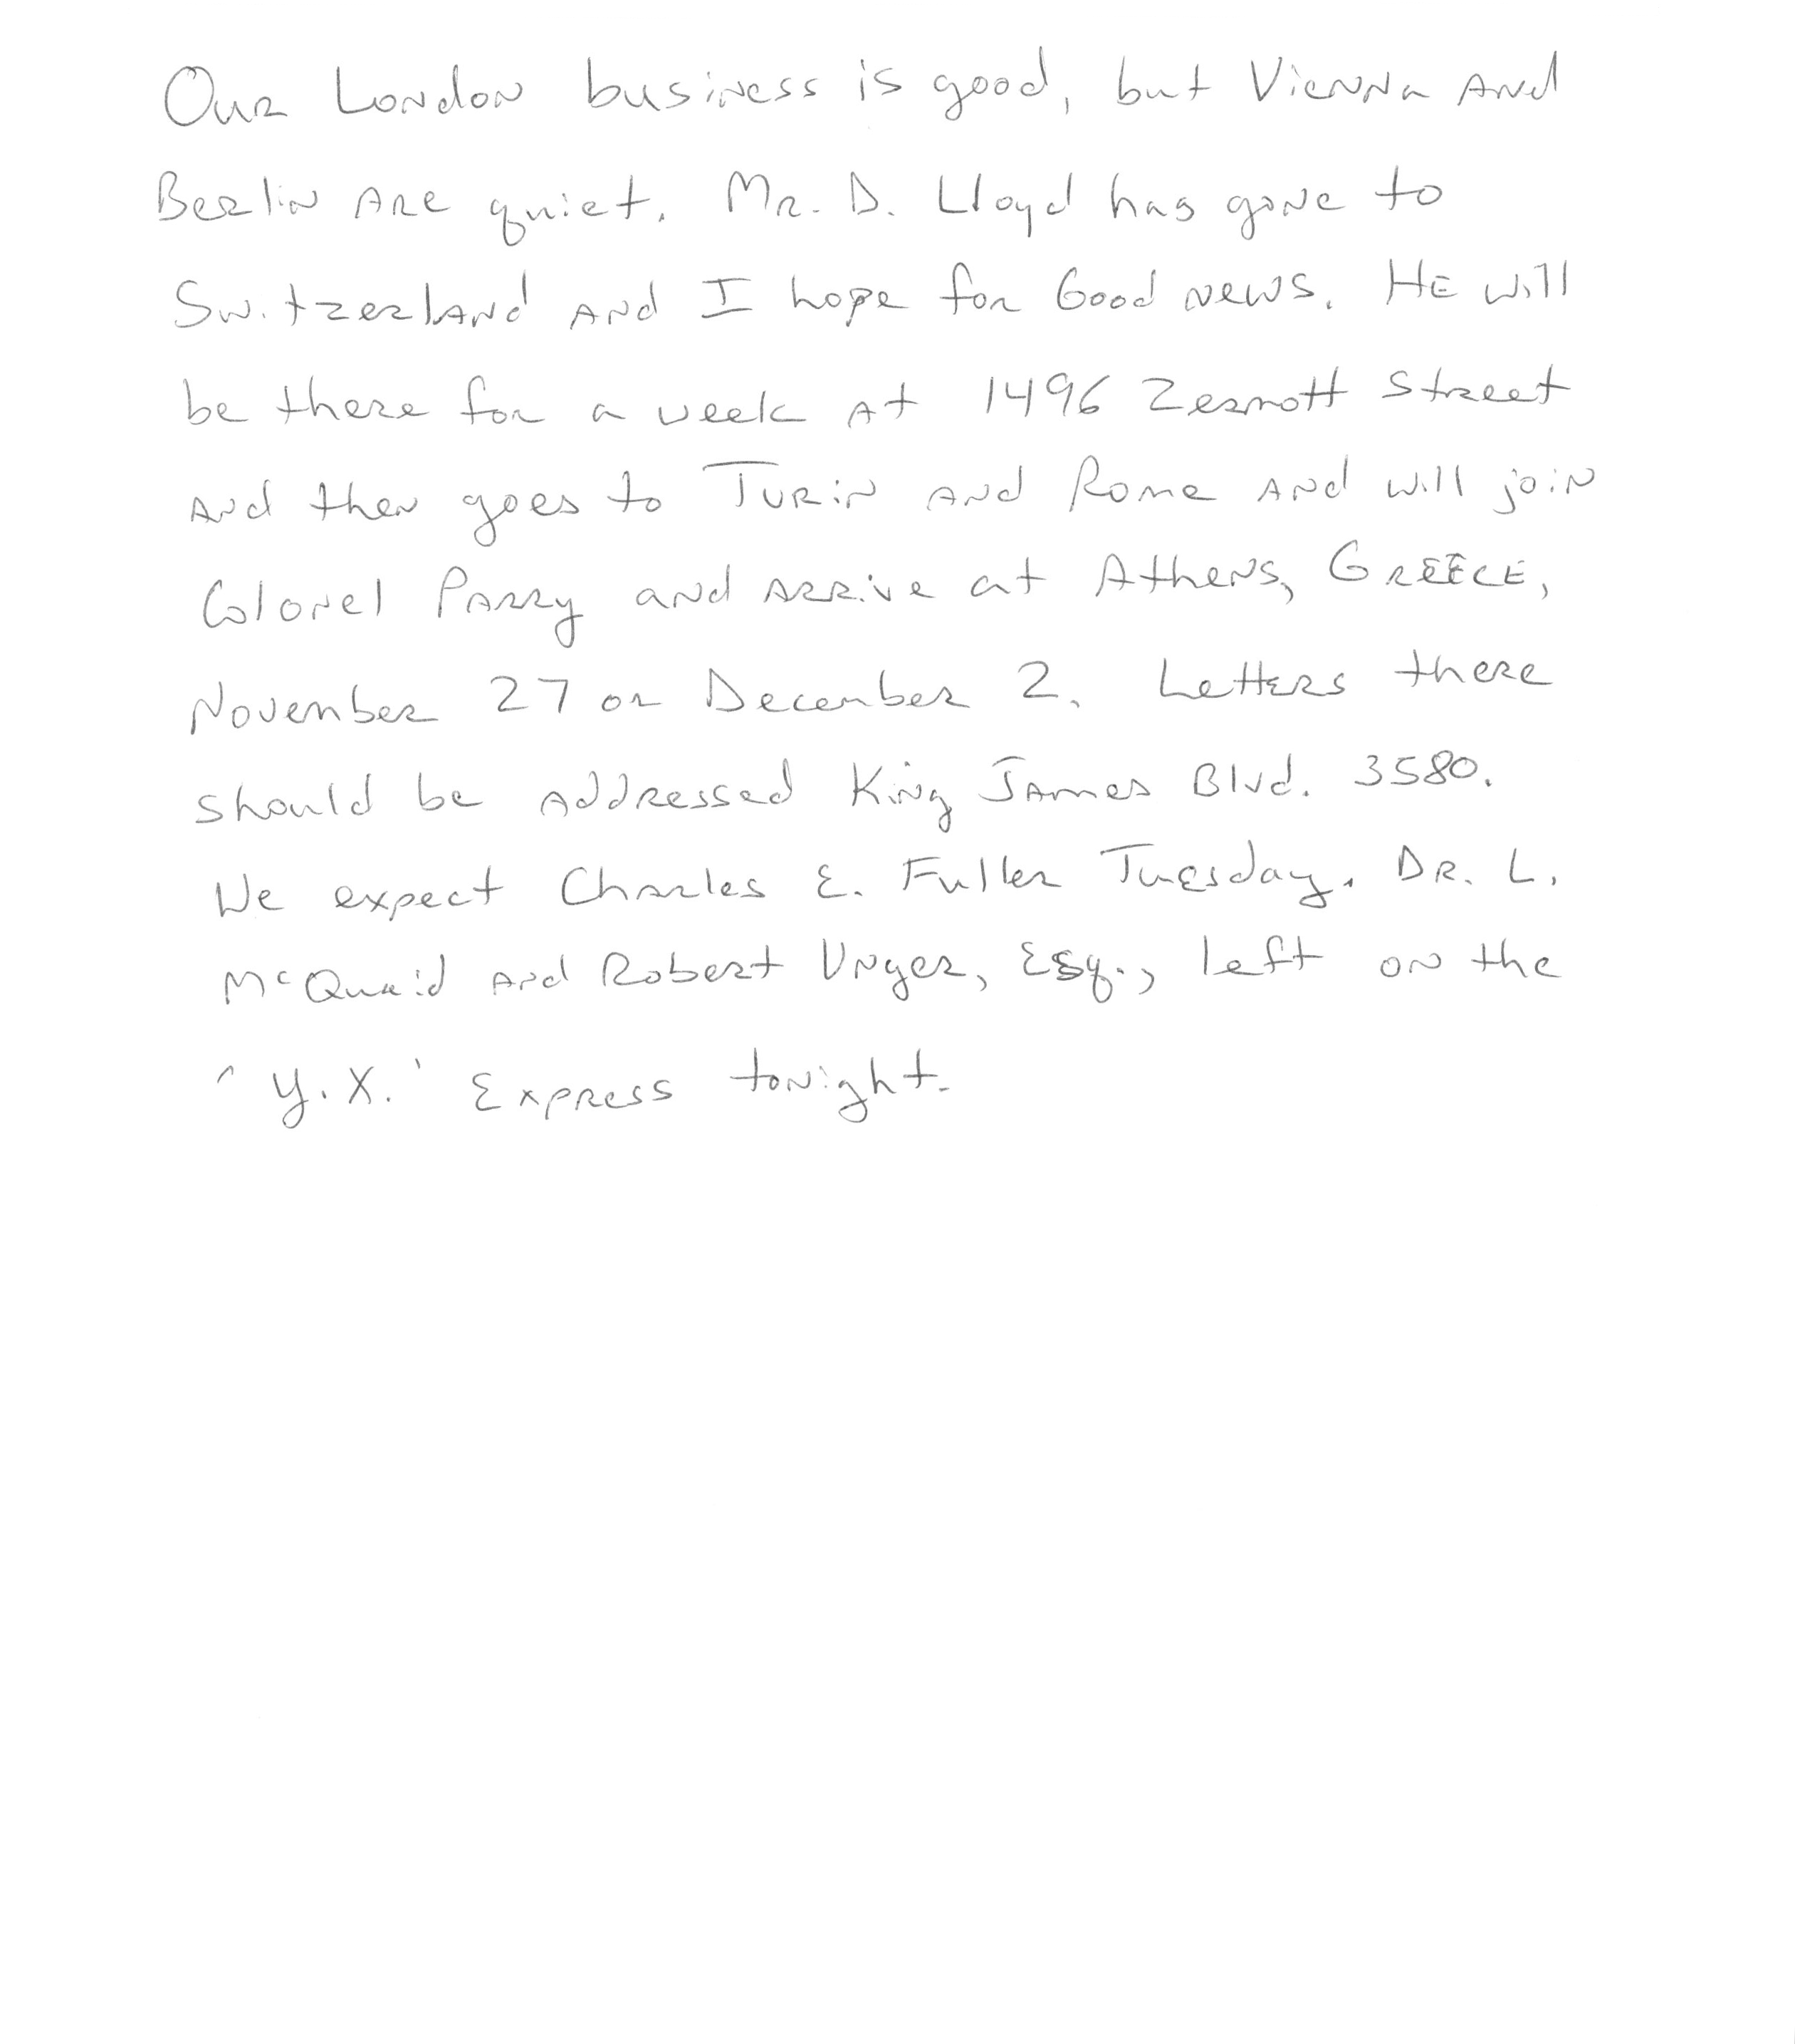 Our London business is good, but Vienna and
Berlin are quiet. Mr. D. Lloyd has gone to
Switzerland and I hope for Good news. He will
be there for a week at 1496 Zermott Street
and then goes to Turin and Rome and will join
Colonel Parry and arrive at Athens, Greece,
November 27 or December 2. Letters there
should be addressed King James Blvd. 3580.
We expect Charles E. Fuller Tuesday. Dr. L.
McQuaid and Robert Unger, Esq., left on the
'Y.X.' Express tonight.